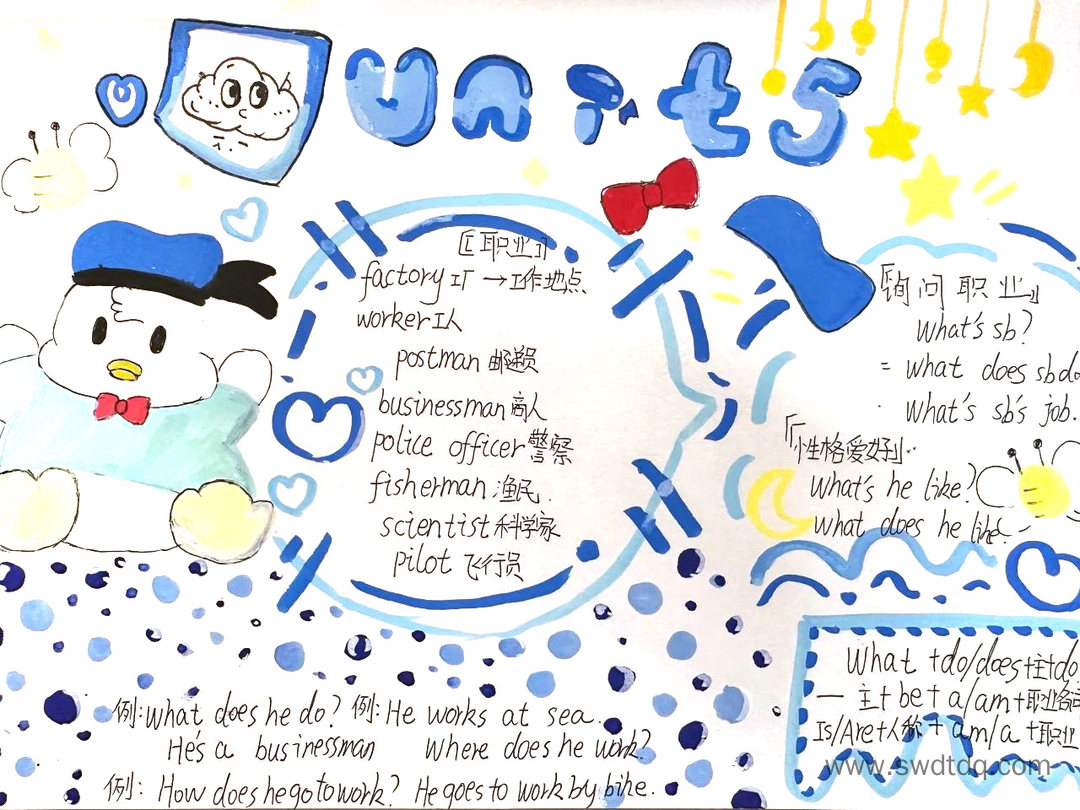 Unit5
『职业』
factory工厂→工作地点
worker工人
postman 邮递员
businessman商人
police officer警察
fisherman 渔民.
scientist科学家
pilot 飞行员
『询问职业』
What's sb?
= what does sb do
what's sb's job.
『性格爱好』
What's he like?
what does he like.
What +do/does+主+do
一 主+be+a/am+职业名词
Is/Are+人称+am/a+职业
例:what does he do?
He's a businessman
例:He works at sea.
Where does he work?
例: How does he go to work? He goes to work by bike.
www.swdtdq.com